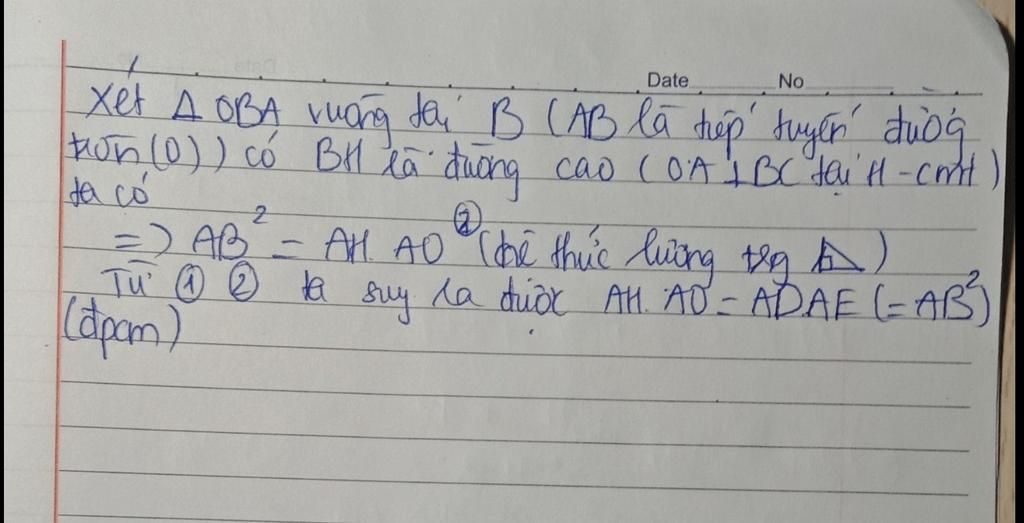 Date No
Xét Δ OBA vuông tại B (AB là tiếp tuyến đường
tròn (O)) có BH là đường cao (OA ⊥ BC tại H - cmt)
ta có
=> AB² = AH. AO ② (hệ thức lượng trg ⊿)
Từ ① ② ta suy ra được AH. AO = AD AE (= AB²)
(đpcm)